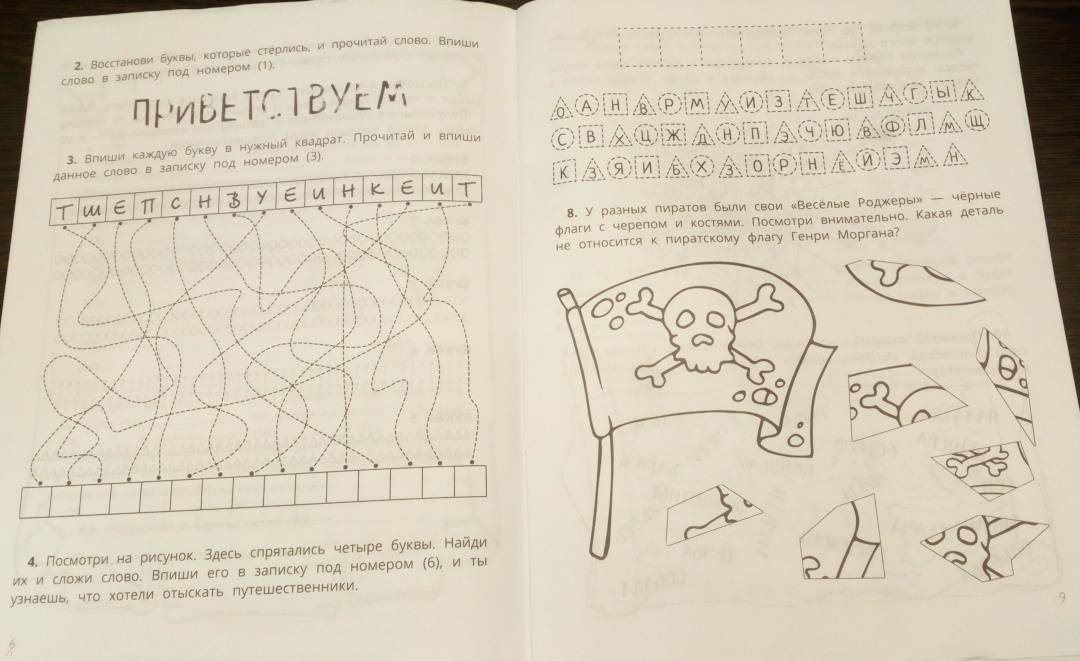 2. Восстанови буквы, которые стёрлись, и прочитай слово. Впиши
слово в записку под номером (1).
ПРИВЕТСТВУЕМ
3. Впиши каждую букву в нужный квадрат. Прочитай и впиши
данное слово в записку под номером (3).
Т Ш Е П С Н В У Е И Н К Е И Т
4. Посмотри на рисунок. Здесь спрятались четыре буквы. Найди
их и сложи слово. Впиши его в записку под номером (6), и ты
узнаешь, что хотели отыскать путешественники.
6
О А Н В Р М У И З Т Е Ш Ч Г Ы К
С В Х Ц Ж Д Н П Э Ч Ю В Ф Л М Щ
К З Я И Б Х З О Р Н Й Э М Н
8. У разных пиратов были свои «Весёлые Роджеры» — чёрные
флаги с черепом и костями. Посмотри внимательно. Какая деталь
не относится к пиратскому флагу Генри Моргана?
9